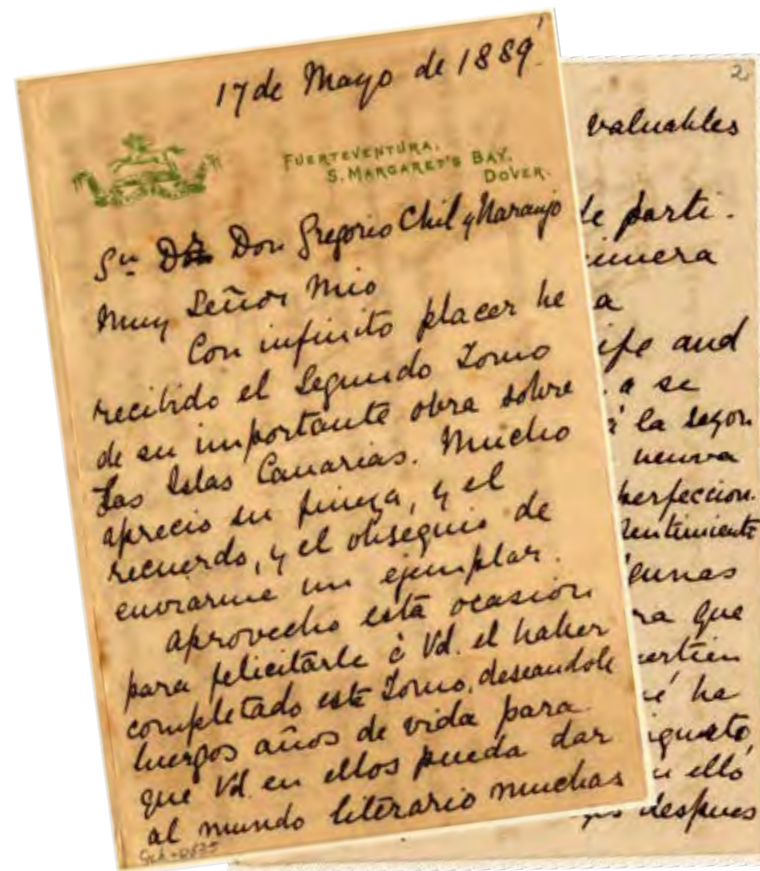 17 de Mayo de 1889.
FUERTEVENTURA,
S. MARGARET'S BAY,
DOVER.
Sn Dr Don Gregorio Chil y Naranjo
Muy Señor Mio
Con infinito placer he
recibido el Segundo Tomo
de su importante obra sobre
Las Islas Canarias. Mucho
aprecio su fineza, y el
recuerdo, y el obsequio de
enviarme un ejemplar.
Aprovecho esta ocasion
para felicitarle á Vd. el haber
completado este Tomo, deseandole
luengos años de vida para
que Vd. en ellos pueda dar
al mundo literario muchas
2
valuables
de parti-
a
ife and
a se
á la segon
perfeccion.
ra que
ha
ello
despues